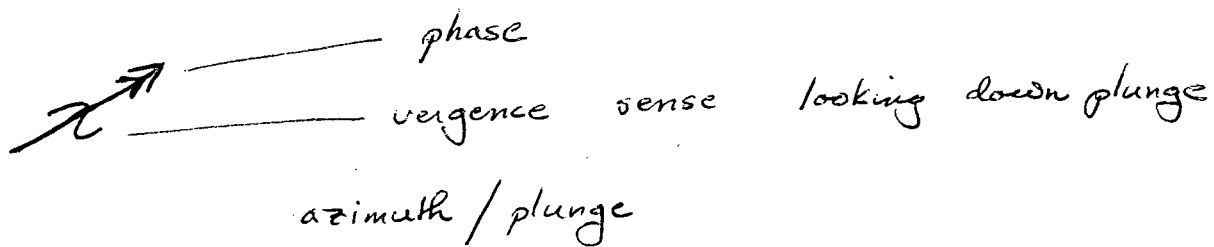 phase
vergence sense looking down plunge
azimuth / plunge